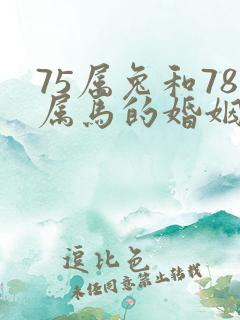 75属兔和78
属马的婚姻
逗比色
未经同意禁止转载